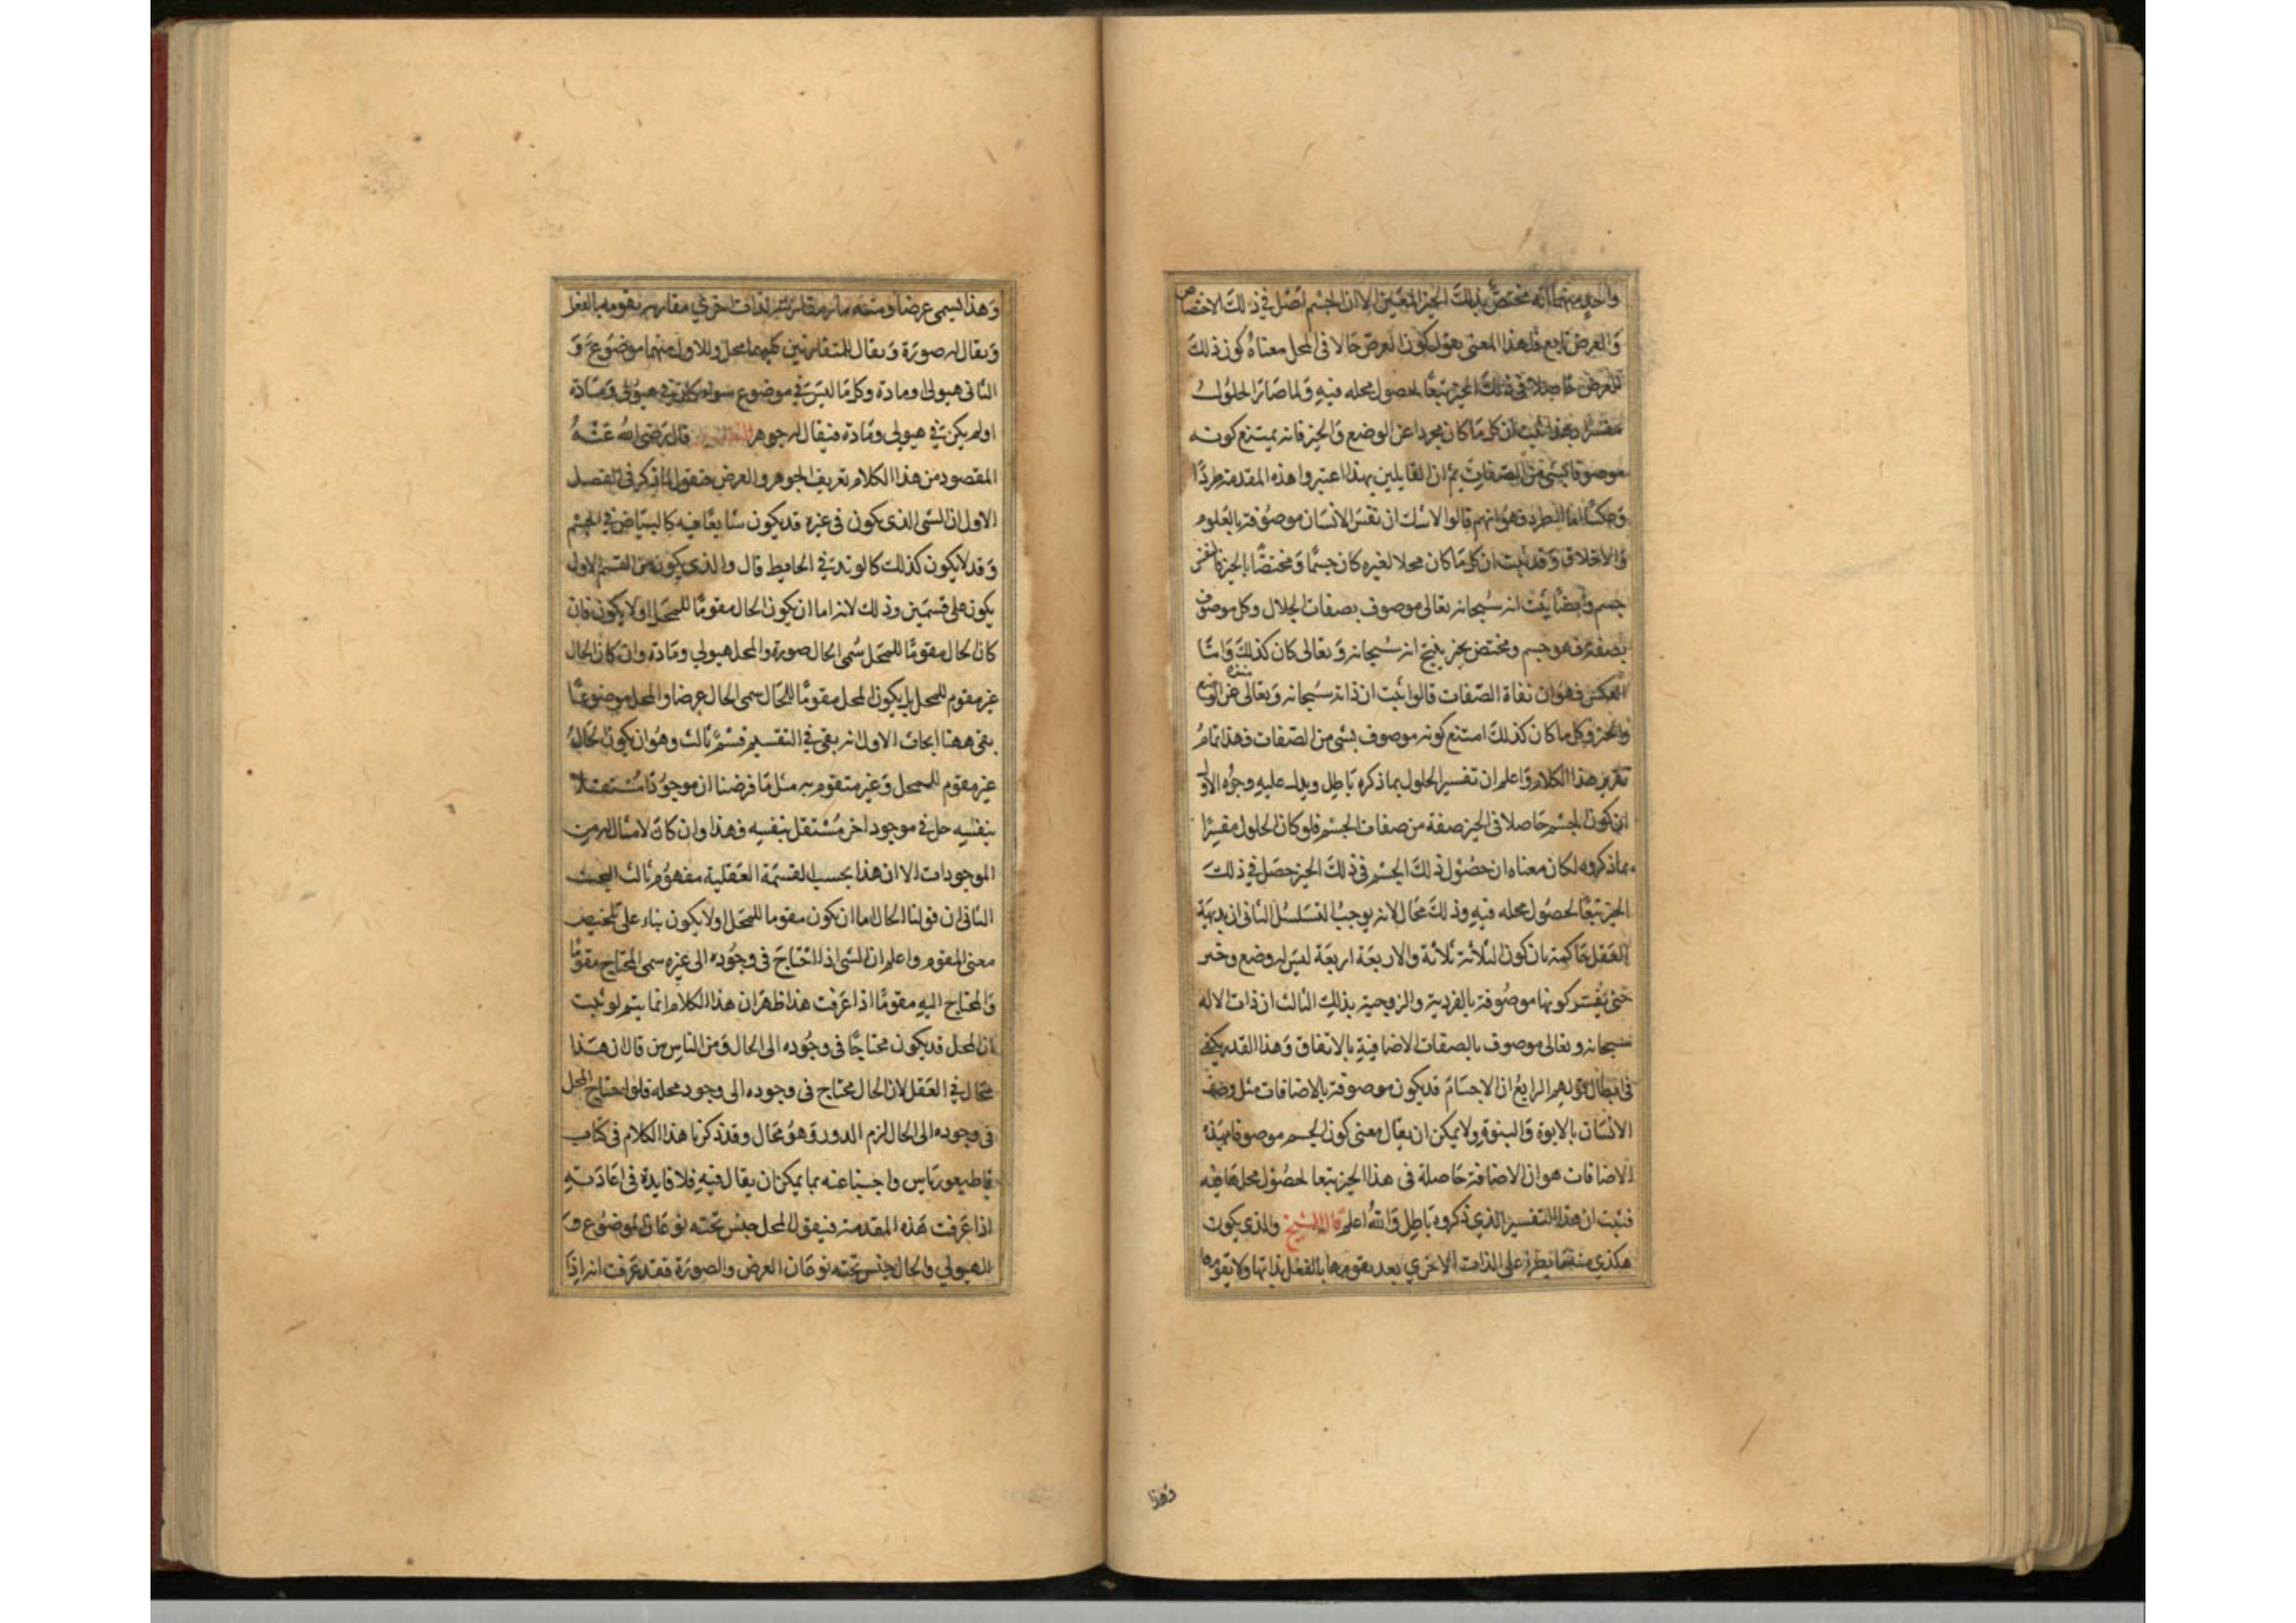 واحد منهما انه مختص بذلك الحيز المعين الا ان الجسم اصل في ذلك الاختصاص
والعرض تابع فلهذا المعنى يقول كون العرض حالا فى المحل معناه كون ذلك
العرض حاصلا فى ذلك الحيز تبعا لحصول محله فيه ولما صار الحلول
مفسرا بهذا ثبت ان كل ما كان مجردا عن الوضع والحيز فانه يمتنع كونه
موصوفا بشى من الصفات ثم ان القايلين بهذا اعتبروا هذه المقدمة طردا
وعكسا اما الطرد فهو انهم قالوا لا شك ان نفس الانسان موصوفة بالعلوم
والاخلاق وقد ثبت ان كل ما كان محلا لغيره كان جسما ومختصا بالحيز فالنفس
جسم وايضا ثبت انه سبحانه تعالى موصوف بصفات الجلال وكل موصوف
بصفة فهو جسم ومختص بحيز ينتج انه سبحانه وتعالى كان كذلك واما
العكس فهو ان نفاة الصفات قالوا ثبت ان ذاته سبحانه وتعالى منزه عن الوضع
والحيز وكل ما كان كذلك امتنع كونه موصوف بشى من الصفات فهذا تمام
تقرير هذا الكلام واعلم ان تفسير الحلول بما ذكره باطل ويدل عليه وجوه الاول
ان كون الجسم حاصلا فى الحيز صفة من صفات الجسم فلو كان الحلول مفسرا
بما ذكروه لكان معناه ان حصول ذلك الجسم فى ذلك الحيز حصل في ذلك
الحيز تبعا لحصول محله فيه وذلك محال لانه يوجب التسلسل الثانى ان بديهة
العقل حاكمة بان كون الثلاثة ثلاثة والاربعة اربعة ليس له وضع وحيز
حتى يفسر كونها موصوفة بالفردية والزوجية بذلك الثالث ان ذات الاله
سبحانه وتعالى موصوف بالصفات الاضافية بالاتفاق وهذا القدر يكفى
فى ابطال قولهم الرابع ان الاجسام قد يكون موصوفة بالاضافات مثل وصف
الانسان بالابوة والبنوة ولا يمكن ان يقال معنى كون الجسم موصوفا بهذه
الاضافات هو ان الاضافة حاصلة فى هذا الحيز تبعا لحصول محلها فيه
فثبت ان هذا التفسير الذي ذكروه باطل والله اعلم قال الشيخ والذي يكون
هكذي منهما يطرء على الذات الاخري بعد تقومها بالفعل بذاتها ولا يقومها
وهذا
وهذا يسمى عرضا ومنه ما مقارنته لذات اخري مقارنه يقومه بالفعل
ويقال له صورة ويقال للمتقارنين كليهما محل وللاول منهما موضوع و
الثانى هيولى ومادة وكل ما ليس في موضوع سواء كان في هيولى ومادة
او لم يكن في هيولى ومادة فيقال له جوهر التفسير قال رضى الله عنه
المقصود من هذا الكلام تعريف الجوهر والعرض فنقول انا نذكر فى الفصل
الاول ان الشى الذى يكون فى غيره قد يكون شايعا فيه كالبياض في الجسم
وقد لا يكون كذلك كالوتد في الحايط قال والذي يكون من القسم الاول
يكون على قسمين وذلك لانه اما ان يكون الحال مقوما للمحل او لا يكون فان
كان الحال مقوما للمحل سمى الحال صورة والمحل هيولي ومادة وان كان الحال
غير مقوم للمحل بل يكون المحل مقوما للحال سمى الحال عرضا والمحل موضوعا
بقى ههنا ابحاث الاول انه بقى في التقسيم قسم ثالث وهو ان يكون الحال
غير مقوم للمحل وغير متقوم به مثل ما فرضنا ان موجودا مستقلا
بنفسه حل في موجود اخر مستقل بنفسه فهذا وان كان لا مثال له من
الموجودات الا ان هذا بحسب القسمة العقلية مفهوم ثالث البحث
الثانى ان قولنا الحال اما ان يكون مقوما للمحل او لا يكون بناء على تلخيص
معنى المقوم واعلم ان الشى اذا احتاج فى وجوده الى غيره سمى المحتاج متقوما
والمحتاج اليه مقوما اذا عرفت هذا ظهر ان هذا الكلام انما يتم لو ثبت
ان المحل قد يكون محتاجا فى وجوده الى الحال ومن الناس من قال ان هذا
محال في العقل لان الحال محتاج فى وجوده الى وجود محله فلو احتاج المحل
فى وجوده الى الحال لزم الدور وهو محال وقد ذكرنا هذا الكلام فى كتاب
قاطيغورياس واجبنا عنه بما يمكن ان يقال فيه فلا فايدة فى اعادته
اذا عرفت هذه المقدمة فنقول المحل جنس تحته نوعان الموضوع و
الهيولي والحال جنس تحته نوعان العرض والصورة فقد عرفت انه اذا